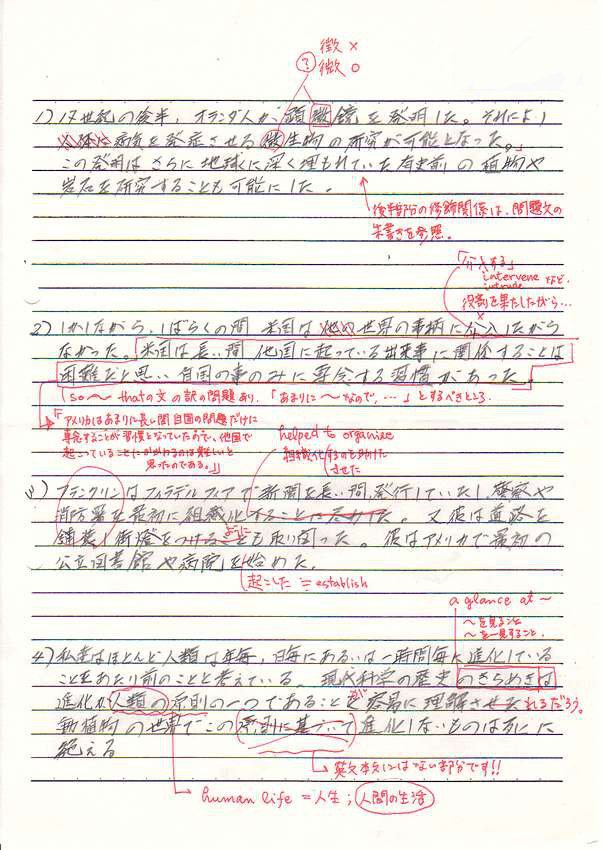 徴 ×
微 ○
?
1) 17世紀の後半, オランダ人が顕微鏡を発明した。それにより
病気を発症させる微生物の研究が可能となった。」
この発明はさらに地球に深く埋もれていた有史前の植物や
岩石を研究することも可能にした。
後半部分の修飾関係は、問題文の
朱書きを参照。
「介入する」
intervene など.
intrude
役割を果たしたがら…
2) しかしながら, しばらくの間 米国は 世界の事柄に介入したがら
なかった。米国は長い間 他国に起っている出来事に関係することは
困難だと思い 自国の事のみに専念する習慣があった。
so〜thatの文の訳の問題あり. 「あまりに〜なので, …」とするべきところ.
「アメリカはあまりに長い間自国の問題だけに
専念することが習慣となっていたので、他国で
起こっていることに するのは難しいと
思ったのである。」
helped to organize
組織化するのを助けた
させた
3) フランクリンはフィラデルフィアで新聞を長い間発行していたし, 警察や
消防署を最初に組織化することに 又彼は道路を
舗装し街燈をつけることも取り図った。彼はアメリカで最初の
ように
公立図書館や病院を始めた.
起こした = establish
a glance at 〜
〜を見ること
〜を一見すること.
4) 私達はほとんど人類は年毎, 日毎にあるいは一時間毎に進化している
ことをあたり前のことと考えている. 現代科学の歴史のきらめきは
進化が人類の原則の一つであることを容易に理解させ れるだろう.
動植物の世界でこの原則に基づいて進化しないものは死に
絶える
英文本文にはない部分です!!
human life = 人生 ; 人間の生活